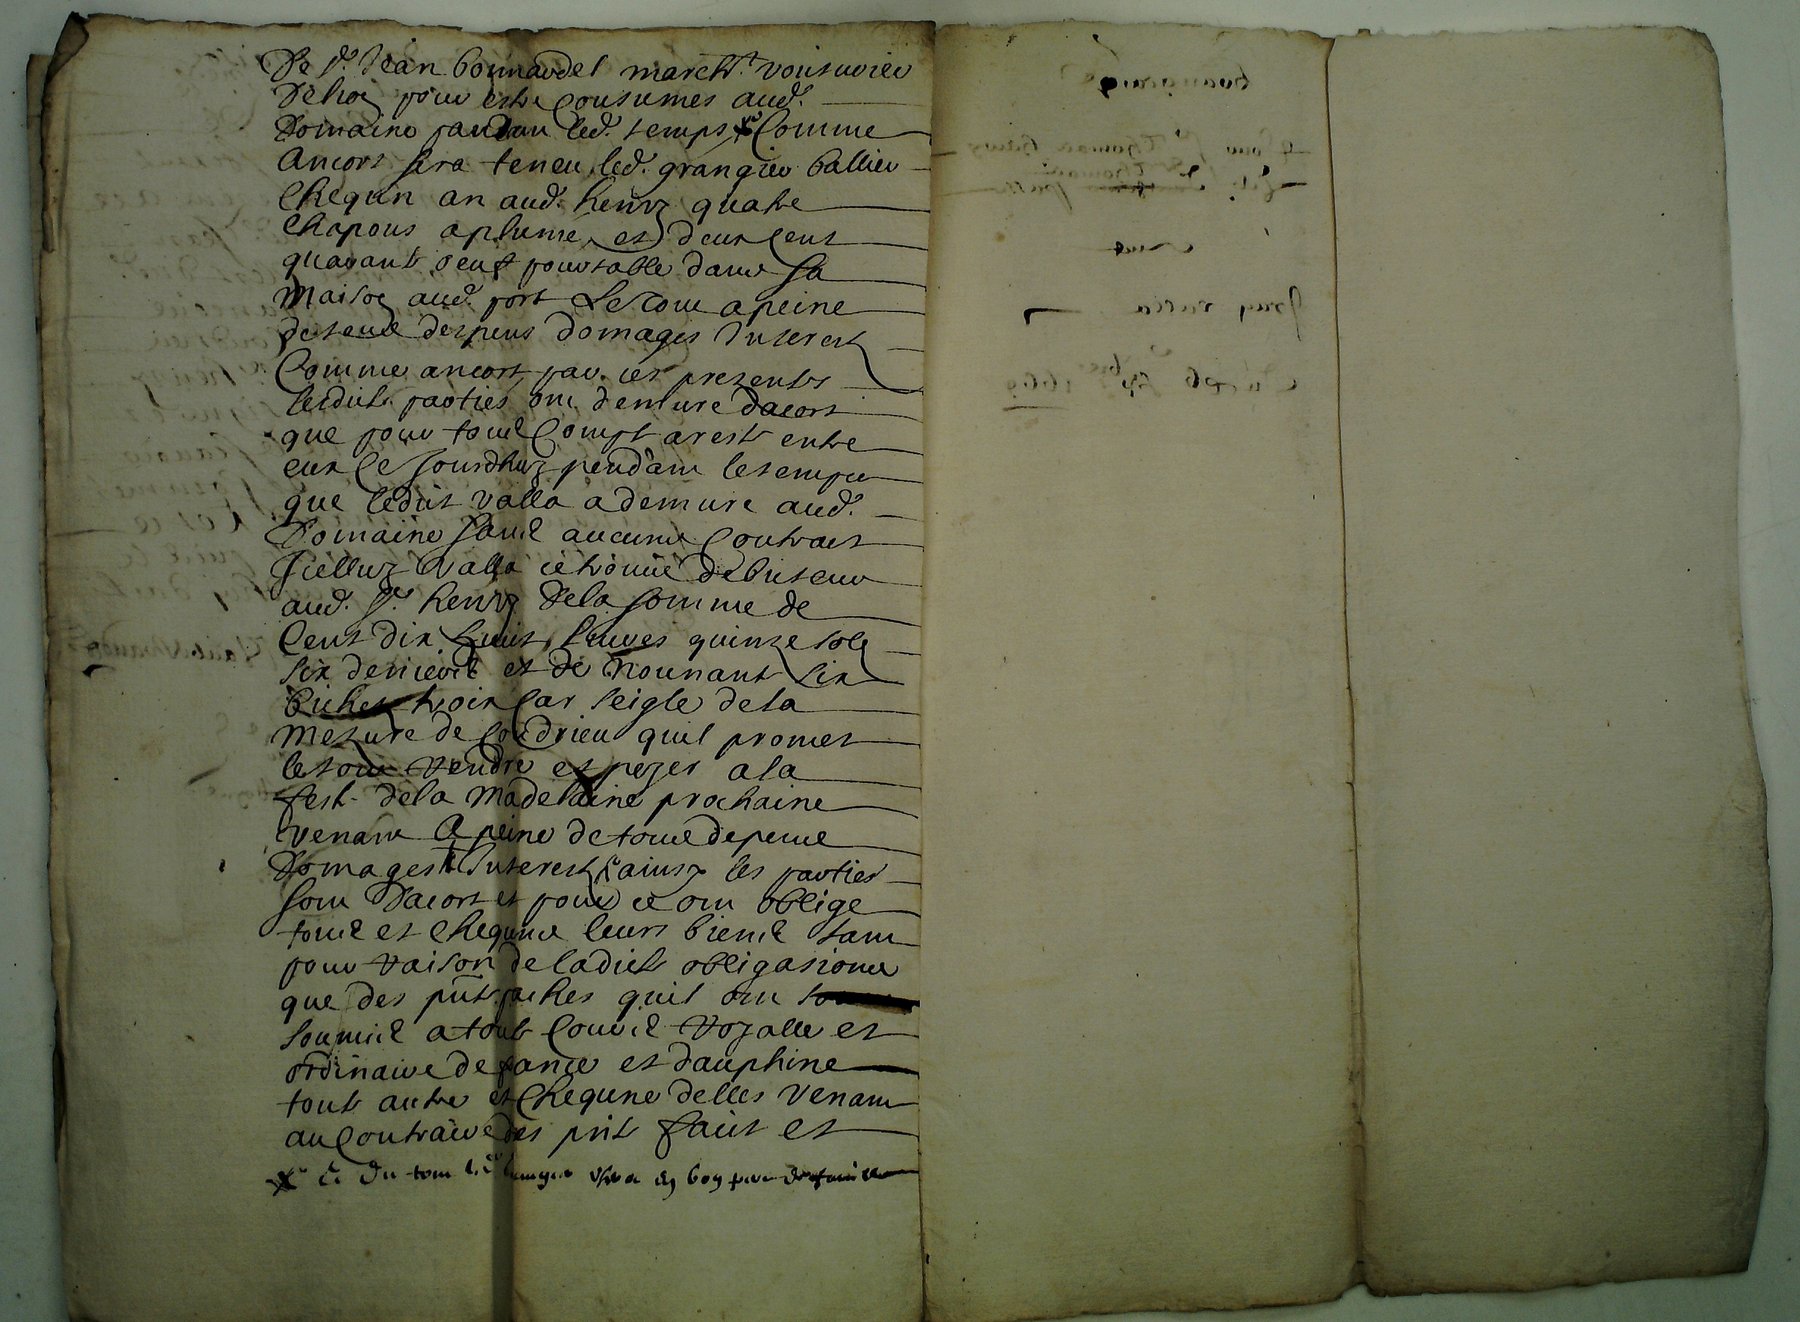 De Sr. Jean bonnardel marcht. voisurier
pour estre Consumes aud.
Domaine pandan led. temps Comme
Ancors sera teneu led. grangier ballier
Chequn an aud. henry quatre
Chapons a plume et deux Cent
quarante oeuf pourtable dans sa
Maison aud. port Le tout a peine
de tous despens domages Interest
Comme ancors par ces presentes
lesdits parties ont demure dacort
que pour tout Compt areste entre
eux Ce Jourdhuy pendant le temps
que ledit Valla a demure aud.
Domaine sans aucune Contract
Icelluy Valla ce trouve debiteur
aud. Sr. henry De la somme de
Cent dix huit livres quinze sols
six deniers et de nonante six
bichet trois Car seigle de la
Mezure de Condrieu quil promet
le tout rendre et pezer a la
fest de la Madelaine prochaine
venant A peine de tous depens
Domages Interest ainsy les parties
sont Dacort et pour ce ont oblige
tous et Chequns leurs biens tant
pour raison de ladicte obligasions
que des pnt. paches quil ont
soumis a tout Cours royalle et
ordinaire de france et dauphine
tout autre et Chequne delles venant
au Contraire des pnts faict et
x du tout led. grangier en bon pere de famille